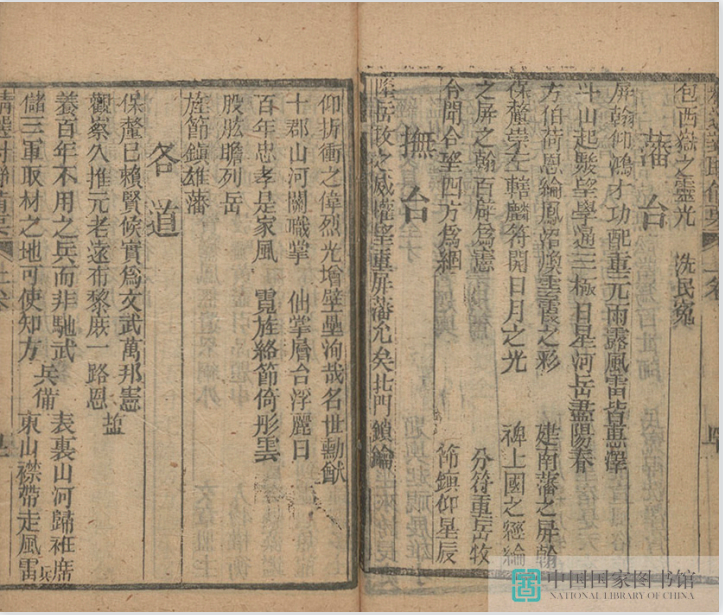 包酉嶽之靈光　洗民冤
藩台
屏翰仰鴻才功配重元雨露風雷皆惠澤
斗山起駿望學逼三極日星河岳盡陽春
方伯荷恩綸鳳沼煥雲霞之彩　建南藩之屏翰
保釐崇左轄麟符開日月之光　裨上國之經綸
之屏之翰百辟爲憲　分符重岳牧
令聞令望四方爲綱　節鎮仰星辰
撫台
隆岳牧之威權望重屏藩允矣北門鎖鑰
仰折衝之偉烈光增壁壘洵哉名世勳猷
十郡山河關職掌　仙掌層台浮麗日
百年忠孝是家風　霓旌絡節倚彤雲
股肱瞻列岳
旌節鎮雄藩
各道
保釐已賴賢候實爲文武萬邦憲
觀察久推元老遠布黎庶一路恩　監
養百年不用之兵而非馳武　表裏山河歸袵席
儲三軍取材之地可使知方　兵備　東山襟帶走風雷　兵
上卷
中国国家图书馆
NATIONAL LIBRARY OF CHINA